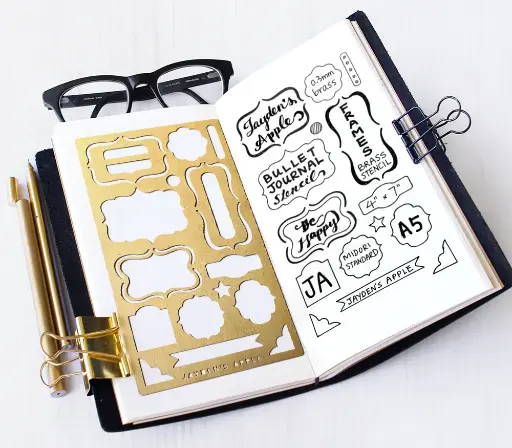 Jayden's
Apple
0.3mm
brass
FRAMES
BRASS
STENCIL
BULLET
JOURNAL
Stencil
4" x 7"
Be
Happy!
A5
MIDORI
STANDARD
JA
JAYDEN'S APPLE
JAYDEN'S APPLE